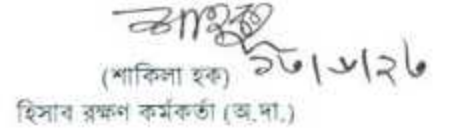 (শাকিলা হক)
হিসাব রক্ষণ কর্মকর্তা (অ.দা.)